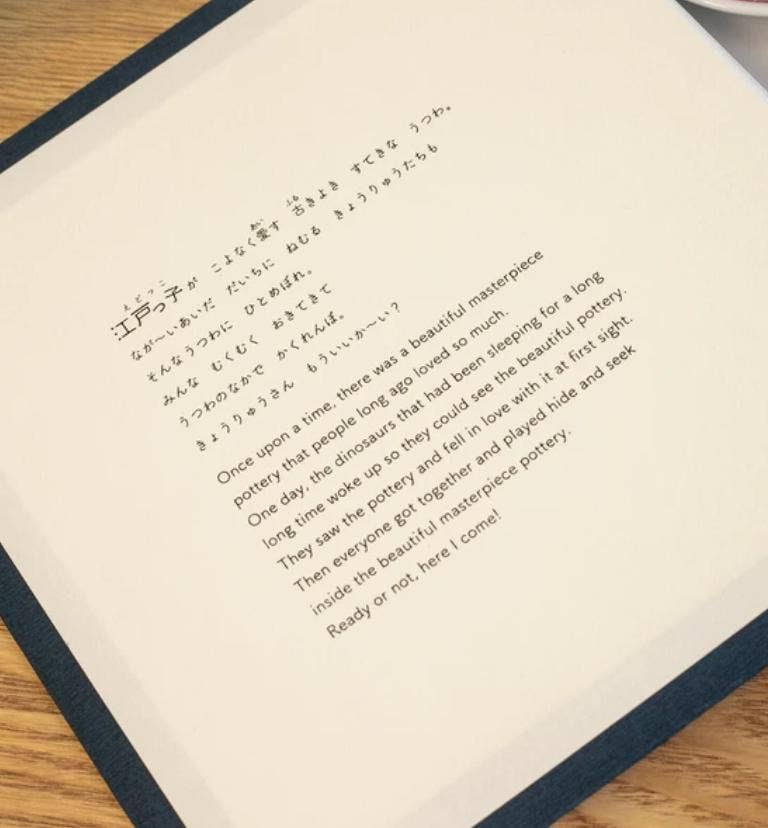 江戸っ子が こよなく愛す 古きよき すてきな うつわ。
なが〜いあいだ だいちに ねむる きょうりゅうたちも
そんなうつわに ひとめぼれ。
みんな むくむく おきてきて
うつわのなかで かくれんぼ。
きょうりゅうさん もういいか〜い?
Once upon a time, there was a beautiful masterpiece
pottery that people long ago loved so much.
One day, the dinosaurs that had been sleeping for a long
long time woke up so they could see the beautiful pottery.
They saw the pottery and fell in love with it at first sight.
Then everyone got together and played hide and seek
inside the beautiful masterpiece pottery.
Ready or not, here I come!